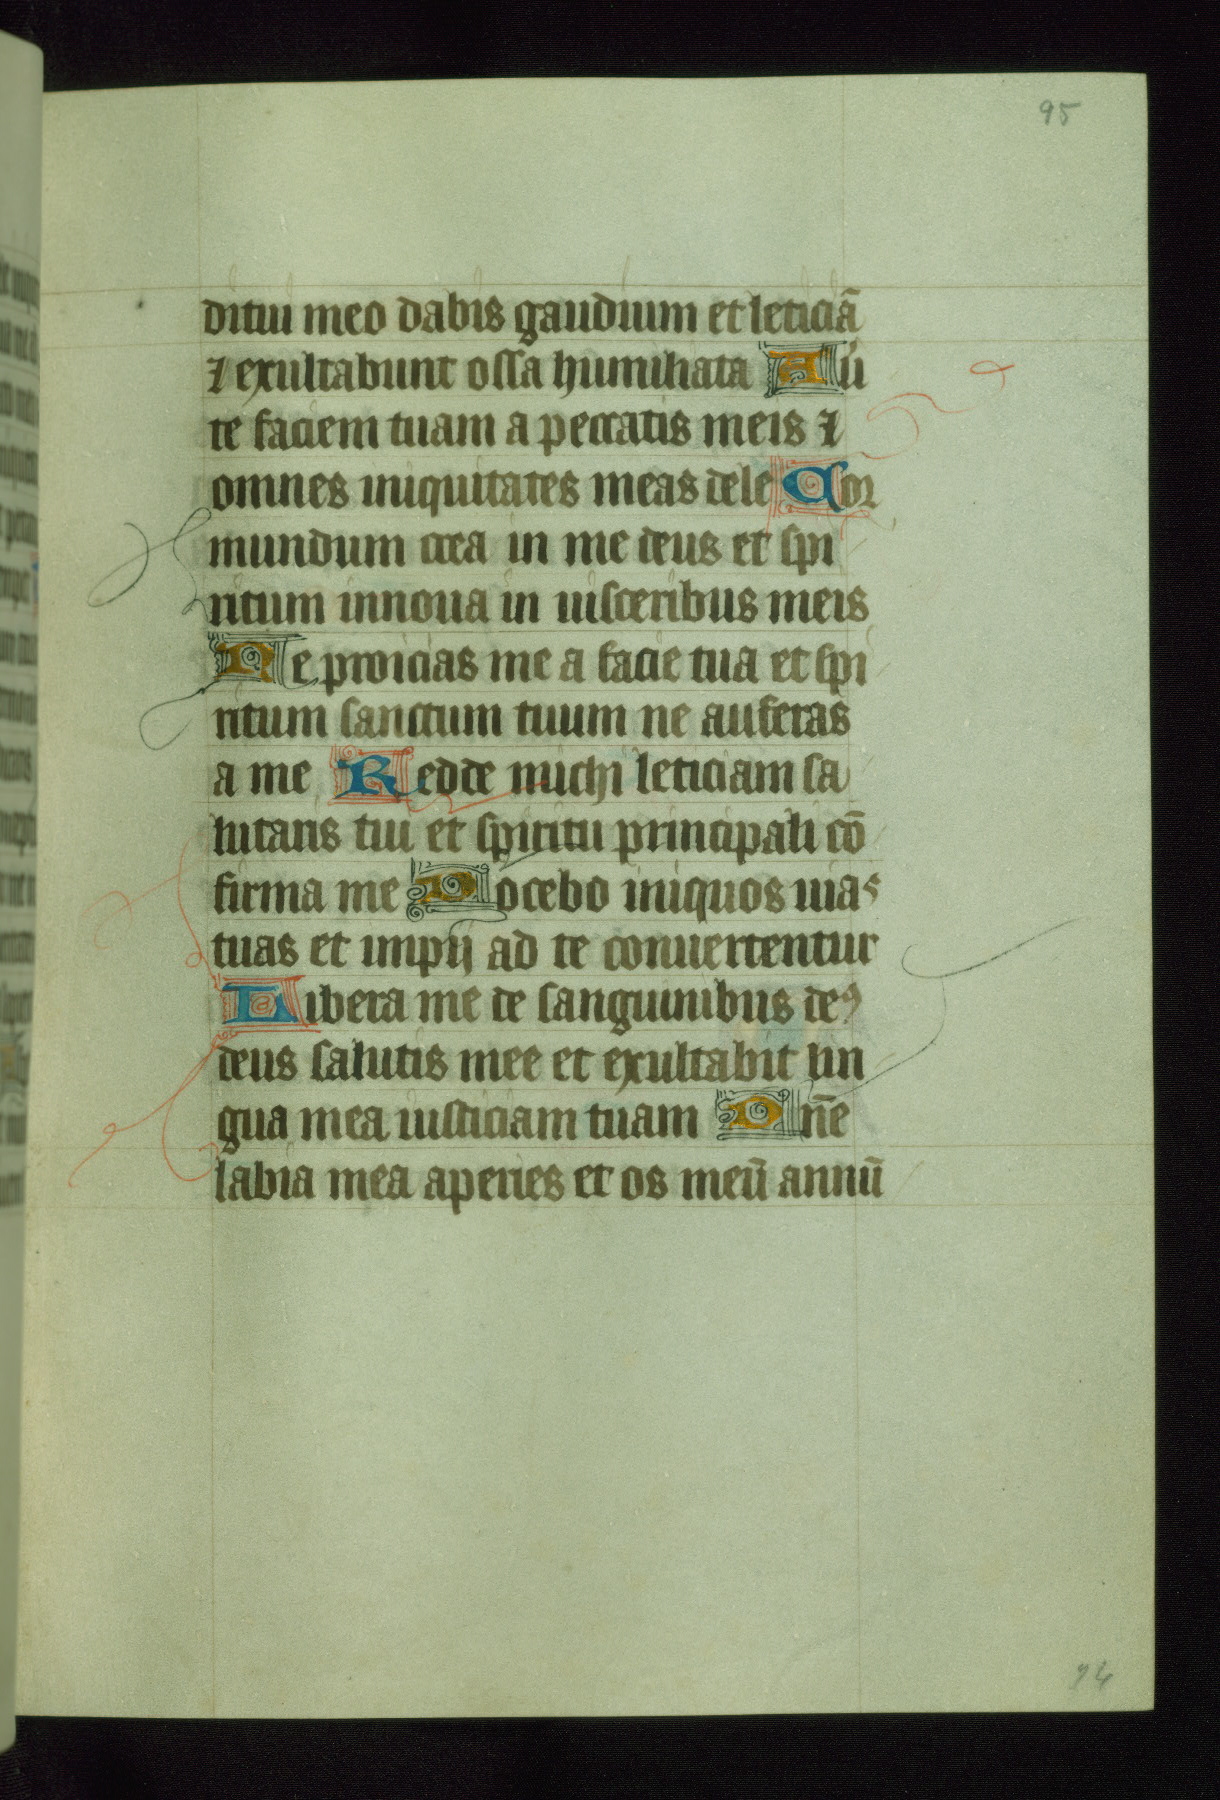 95
ditui meo dabis gaudium et leticiā
⁊ exultabunt ossa humiliata Au
te faciem tuam a peccatis meis ⁊
omnes iniquitates meas dele Cor
mundum crea in me deus et spi
ritum innoua in uisceribus meis
Ne proicias me a facie tua et spi
ritum sanctum tuum ne auferas
a me Redde michi leticiam sa
lutaris tui et spiritu principali cō
firma me Docebo iniquos uias
tuas et impij ad te conuertentur
Libera me de sanguinibus deꝰ
deus salutis mee et exultabit lin
gua mea iusticiam tuam Dn̄e
labia mea aperies et os meū annū
94